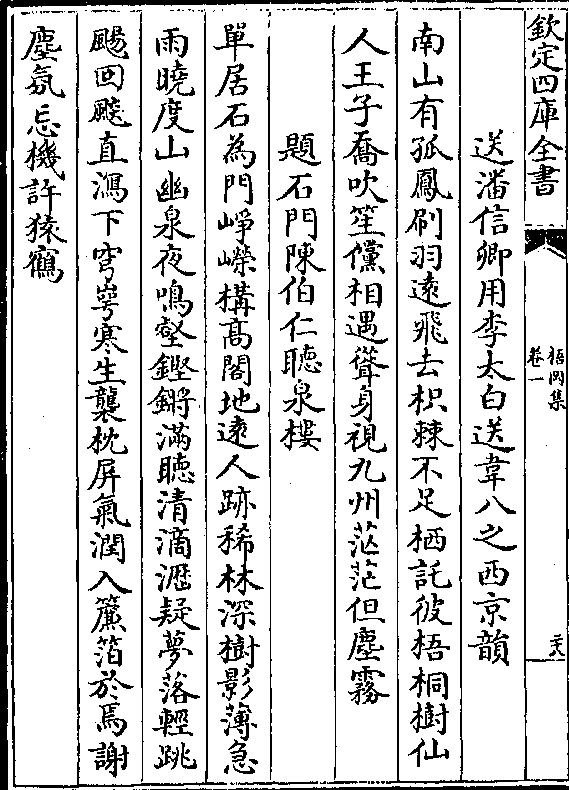 欽定四庫全書
梧岡集
卷一
二六
送潘信卿用李太白送韋八之西京韻
南山有孤鳳刷羽遠飛去枳棘不足栖託彼梧桐樹仙
人王子喬吹笙儻相遇聳身視九州茫茫但塵霧
題石門陳伯仁聽泉樓
單居石為門崢嶸構高閣地遠人跡稀林深樹影薄急
雨曉度山幽泉夜鳴壑鏗鏘滿聽清滴瀝疑夢落輕跳
颺回飇直瀉下穹崿寒生襲枕屏氣潤入簾箔於焉謝
塵氛忘機許猿鶴